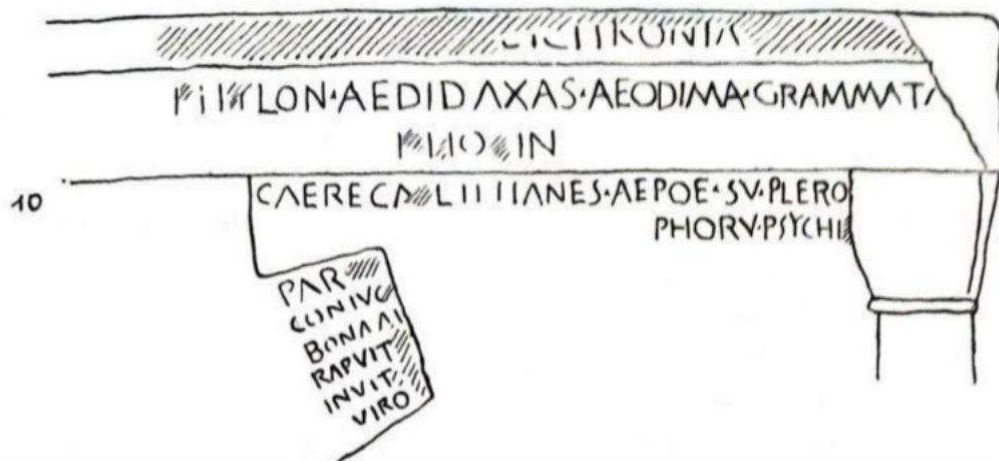 LON·AEDIDAXAS·AEODIMA·GRAMMATA
IN
10
CAERECA LIIIIANES·AEPOE·SV·PLERO
PHORV·PSYCHI
PAR
CONIVG
BONA
RAPVIT
INVIT
VIRO